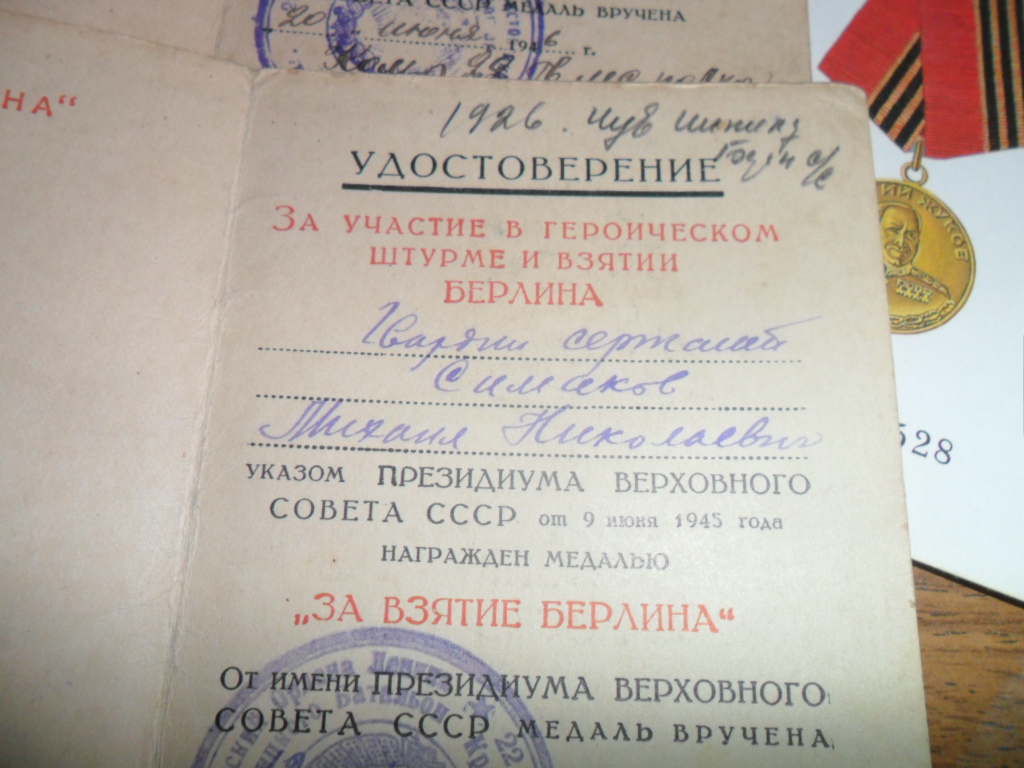 СОВЕТА СССР МЕДАЛЬ ВРУЧЕНА
20 июня 1946 г.
НА“
1926.
УДОСТОВЕРЕНИЕ
ЗА УЧАСТИЕ В ГЕРОИЧЕСКОМ
ШТУРМЕ И ВЗЯТИИ
БЕРЛИНА
Гвардии сержант
Симаков
Михаил Николаевич
УКАЗОМ ПРЕЗИДИУМА ВЕРХОВНОГО
СОВЕТА СССР от 9 июня 1945 года
НАГРАЖДЕН МЕДАЛЬЮ
„ЗА ВЗЯТИЕ БЕРЛИНА“
ОТ ИМЕНИ ПРЕЗИДИУМА ВЕРХОВНОГО
СОВЕТА СССР МЕДАЛЬ ВРУЧЕНА
Ордена
Батальон
22
ЖУКОВ
528